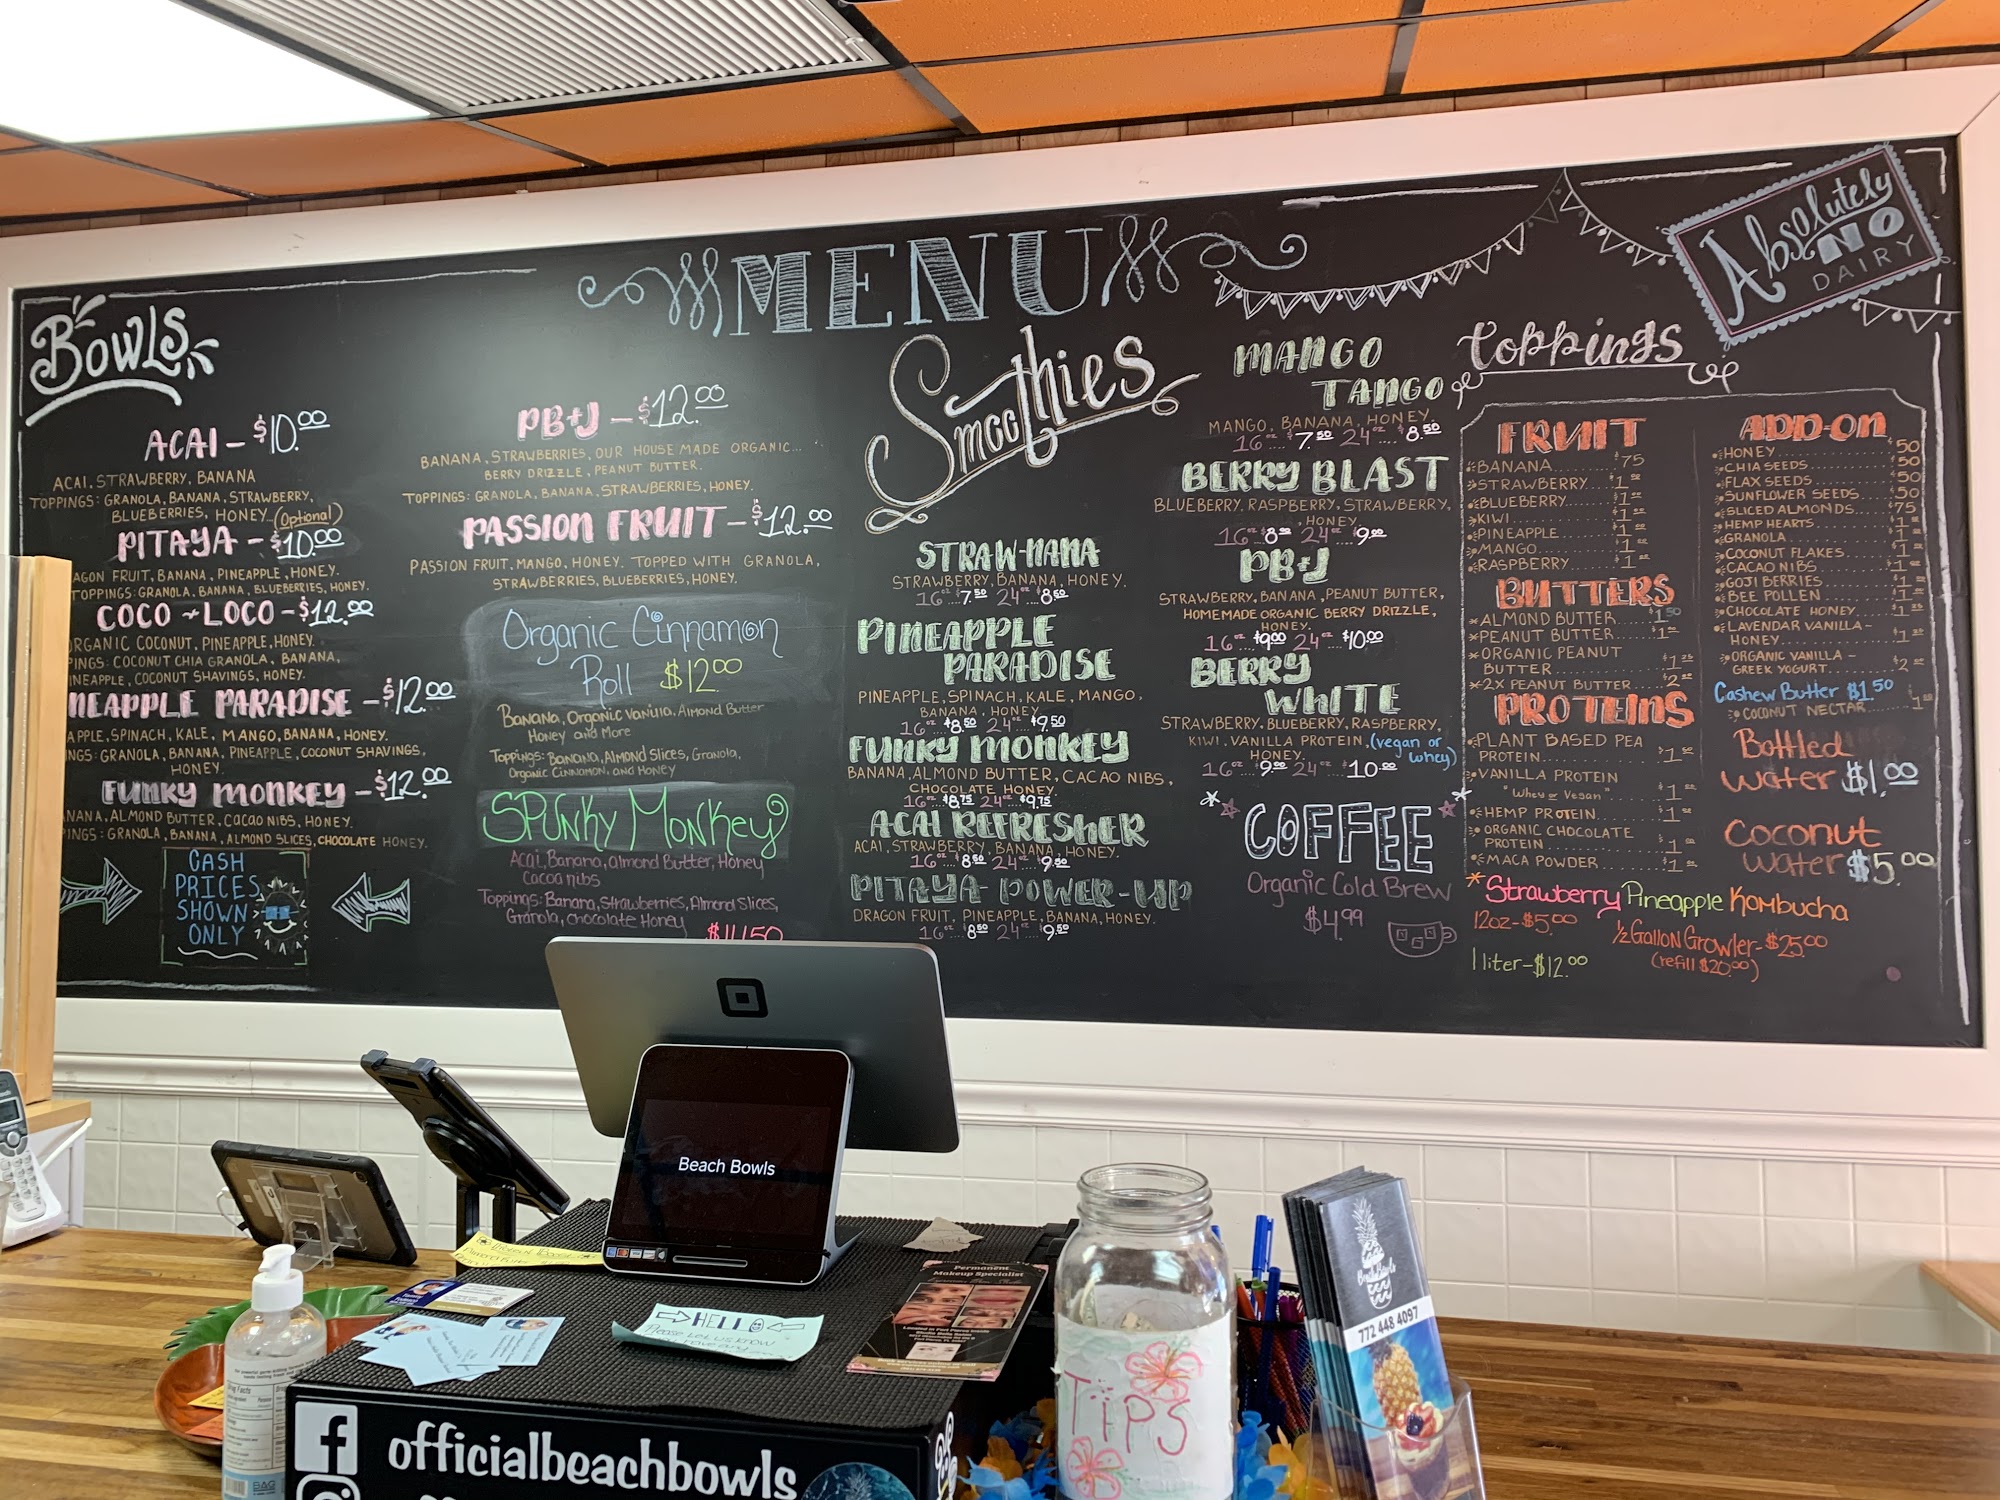 MENU
Absolutely
NO
DAIRY
Bowls
ACAI - $10.00
ACAI, STRAWBERRY, BANANA
TOPPINGS: GRANOLA, BANANA, STRAWBERRY,
BLUEBERRIES, HONEY (Optional)
PITAYA - $10.00
AGON FRUIT, BANANA, PINEAPPLE, HONEY.
TOPPINGS: GRANOLA, BANANA, BLUEBERRIES, HONEY.
COCO-LOCO - $12.00
ORGANIC COCONUT, PINEAPPLE, HONEY.
PINGS: COCONUT CHIA GRANOLA, BANANA,
INEAPPLE, COCONUT SHAVINGS, HONEY.
NEAPPLE PARADISE - $12.00
APPLE, SPINACH, KALE, MANGO, BANANA, HONEY.
INGS: GRANOLA, BANANA, PINEAPPLE, COCONUT SHAVINGS,
HONEY.
FUNKY MONKEY - $12.00
NANA, ALMOND BUTTER, CACAO NIBS, HONEY.
PINGS: GRANOLA, BANANA, ALMOND SLICES, CHOCOLATE HONEY.
CASH
PRICES
SHOWN
ONLY
PB+J - $12.00
BANANA, STRAWBERRIES, OUR HOUSE MADE ORGANIC...
BERRY DRIZZLE, PEANUT BUTTER.
TOPPINGS: GRANOLA, BANANA, STRAWBERRIES, HONEY.
PASSION FRUIT - $12.00
PASSION FRUIT, MANGO, HONEY. TOPPED WITH GRANOLA,
STRAWBERRIES, BLUEBERRIES, HONEY.
Organic Cinnamon
Roll $12.00
Banana, Organic Vanilla, Almond Butter
Honey and More
Toppings: Banana, Almond Slices, Granola,
Organic Cinnamon, and Honey
SPUNKY MONKEY
Acai, Banana, almond Butter, Honey
Cacoa nibs
Toppings: Banana, Strawberries, Almond Slices,
Granola, chocolate Honey
Smoothies
STRAW-NANA
STRAWBERRY, BANANA, HONEY.
16oz....7.50 24oz....8.50
PINEAPPLE
PARADISE
PINEAPPLE, SPINACH, KALE, MANGO,
BANANA, HONEY
16oz...$8.50 24oz...$9.50
FUNKY MONKEY
BANANA, ALMOND BUTTER, CACAO NIBS,
CHOCOLATE HONEY.
16oz...$8.75 24oz...$9.75
ACAI REFRESHER
ACAI, STRAWBERRY, BANANA, HONEY.
16oz....$8.50 24oz....$9.50
PITAYA POWER-UP
DRAGON FRUIT, PINEAPPLE, BANANA, HONEY.
16oz....$8.50 24oz....$9.50
MANGO
TANGO
MANGO, BANANA, HONEY.
16oz...$7.50 24oz....$8.50
BERRY BLAST
BLUEBERRY, RASPBERRY, STRAWBERRY,
HONEY
16oz....$8.00 24oz....$9.00
PB+J
STRAWBERRY, BANANA, PEANUT BUTTER,
HOMEMADE ORGANIC BERRY DRIZZLE,
HONEY.
16oz....$9.00 24oz....$10.00
BERRY
WHITE
STRAWBERRY, BLUEBERRY, RASPBERRY,
KIWI, VANILLA PROTEIN, (vegan or
HONEY. whey)
16oz....9.00 24oz....10.00
COFFEE
Organic Cold Brew
$4.99
toppings
FRUIT
BANANA $.75
STRAWBERRY $1.00
BLUEBERRY $1.00
KIWI $1.00
PINEAPPLE $1.00
MANGO $1.00
RASPBERRY $1.00
BUTTERS
ALMOND BUTTER $1.50
PEANUT BUTTER $1.00
ORGANIC PEANUT
BUTTER $1.25
2X PEANUT BUTTER $2.00
PROTEINS
PLANT BASED PEA
PROTEIN $1.50
VANILLA PROTEIN
"Whey or Vegan" $1.00
HEMP PROTEIN $1.00
ORGANIC CHOCOLATE
PROTEIN $1.00
MACA POWDER $1.00
ADD-ON
HONEY .50
CHIA SEEDS .50
FLAX SEEDS .50
SUNFLOWER SEEDS .50
SLICED ALMONDS $.75
HEMP HEARTS $1
GRANOLA $1
COCONUT FLAKES $1
CACAO NIBS $1
GOJI BERRIES $1
BEE POLLEN $1
CHOCOLATE HONEY $1.25
LAVENDAR VANILLA-
HONEY $1
ORGANIC VANILLA-
GREEK YOGURT $2.00
Cashew Butter $1.50
COCONUT NECTAR
Bottled
Water $1.00
Coconut
Water $5.00
Strawberry Pineapple Kombucha
12oz-$5.00 1/2 Gallon Growler-$25.00
(refill $20.00)
1 liter-$12.00
Beach Bowls
HELLO
Please let us know
Permanent
Makeup Specialist
TIPS
Beach Bowls
772 448 4097
officialbeachbowls